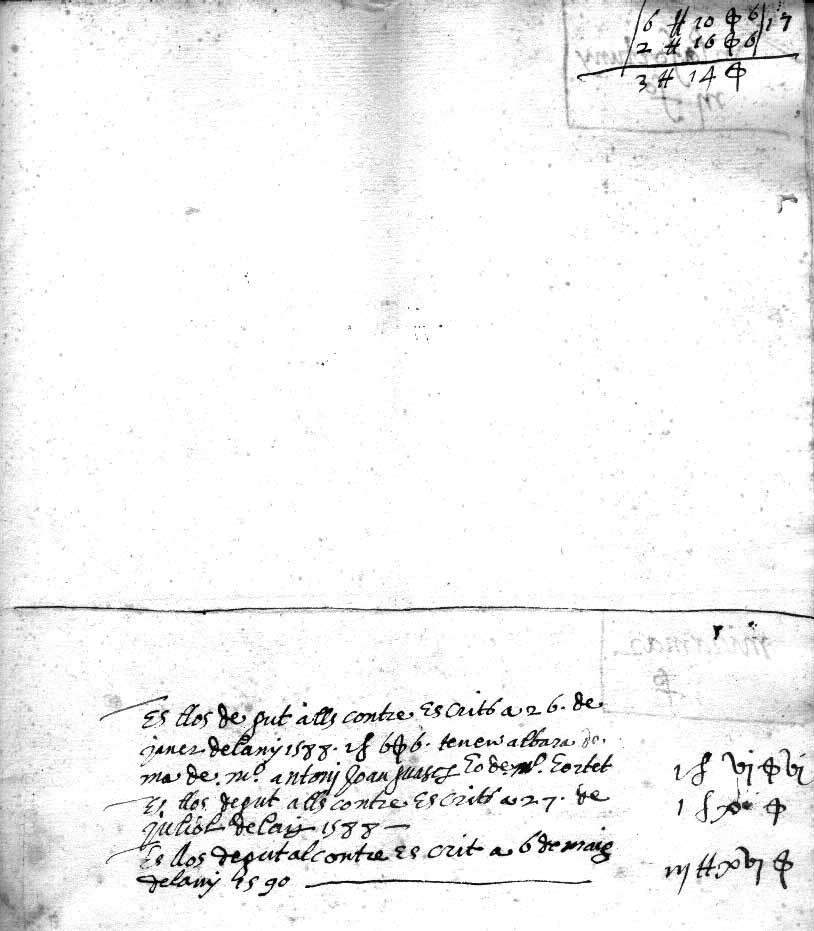 6 ħ 10 ϕ 6 / 17
2 ħ 16 ϕ 6
3 ħ 14 ϕ
Es llos degut alls contre Escrits a 26. de
janer delany 1588. 1 ħ 6 ϕ 6. tenen albara de.
ma de. mº. antonj Joan Eo de mº. Tortet
Es llos degut alls contre Escrits a 27. de
Juliol delany 1588 —
Es llos degut al contre Escrit a 6 de maig
delany 1590
1 ħ vj ϕ vj
1 ħ ϕ
iij ħ xvj ϕ